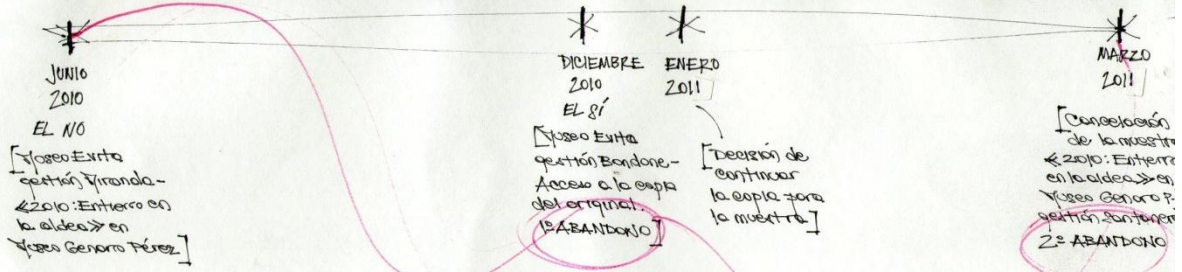 JUNIO
2010
EL NO
[Museo Evita
gestión Miranda-
«2010: Entierro en
la aldea» en
Museo Genaro Pérez]
DICIEMBRE
2010
EL SÍ
[Museo Evita
gestión Bondone-
Acceso a la copia
del original.
1º ABANDONO]
ENERO
2011
[Decisión de
continuar
la copia para
la muestra]
MARZO
2011
[Cancelación
de la muestra
«2010: Entierro
en la aldea» en
Museo Genaro P
gestión
2º ABANDONO